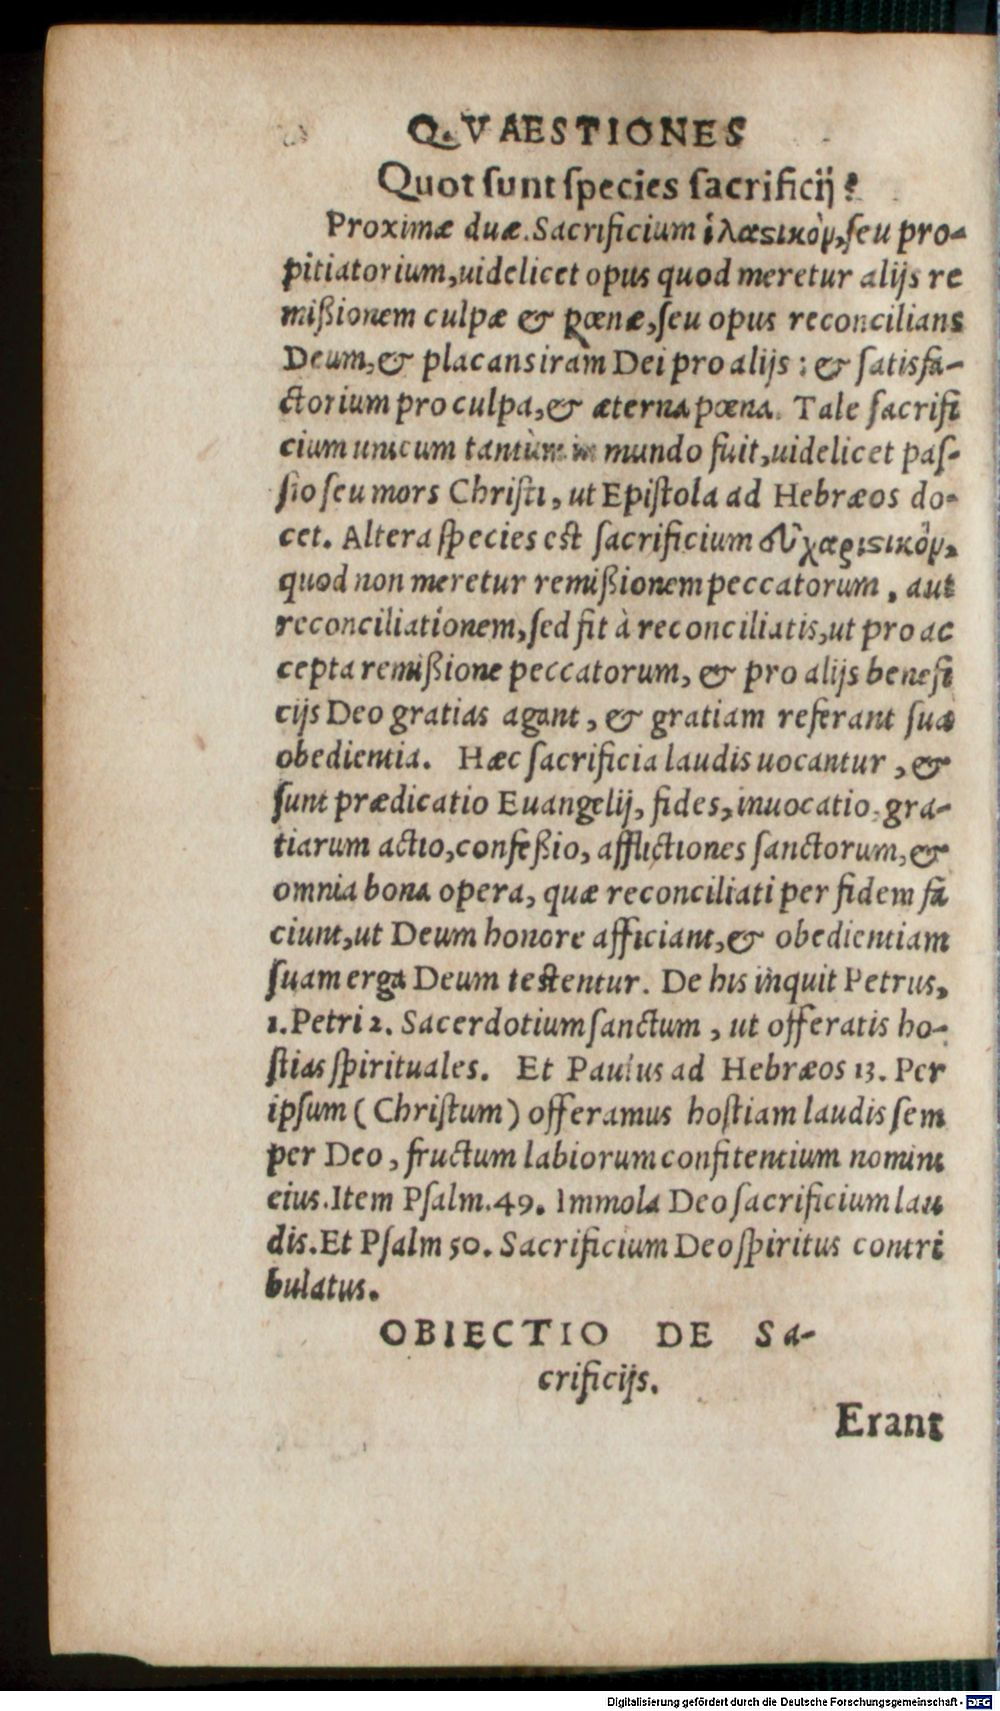 QVAESTIONES
Quot ſunt ſpecies ſacrificij?
Proximæ duæ. Sacrificium ἱλαστικὸν, ſeu pro-
pitiatorium, uidelicet opus quod meretur alijs re
mißionem culpæ & pœnæ, ſeu opus reconcilians
Deum, & placans iram Dei pro alijs: & ſatisfa-
ctorium pro culpa, & æterna pœna. Tale ſacrifi
cium unicum tantùm in mundo fuit, uidelicet paſ-
ſio ſeu mors Chriſti, ut Epiſtola ad Hebræos do-
cet. Altera ſpecies est ſacrificium εὐχαριστικὸν,
quod non meretur remißionem peccatorum, aut
reconciliationem, ſed fit à reconciliatis, ut pro ac
cepta remißione peccatorum, & pro alijs benefi
cijs Deo gratias agant, & gratiam referant ſua
obedientia. Hæc ſacrificia laudis uocantur, &
ſunt prædicatio Euangelij, fides, inuocatio, gra-
tiarum actio, confeßio, afflictiones ſanctorum, &
omnia bona opera, quæ reconciliati per fidem fa
ciunt, ut Deum honore afficiant, & obedientiam
ſuam erga Deum testentur. De his inquit Petrus,
1. Petri 2. Sacerdotium ſanctum, ut offeratis ho-
ſtias ſpirituales. Et Paulus ad Hebræos 13. Per
ipſum (Chriſtum) offeramus hoſtiam laudis ſem
per Deo, fructum labiorum confitentium nomini
eius. Item Pſalm. 49. Immola Deo ſacrificium lau
dis. Et Pſalm 50. Sacrificium Deo ſpiritus contri
bulatus.
OBIECTIO DE Sa-
crificijs.
Erant
Digitalisierung gefördert durch die Deutsche Forschungsgemeinschaft - DFG